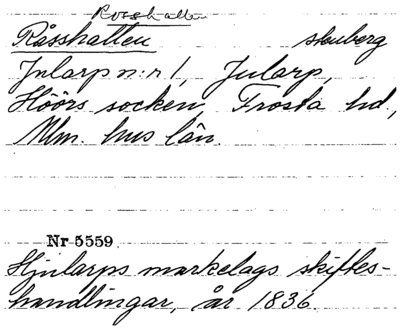 Rosshallen
Råsshallen stenberg
Jularp n:r 1, Jularp,
Höörs socken, Frosta hd,
Mlm. hus län.
Nr 5559
Hjularps markelags skiftes-
handlingar, år 1836.